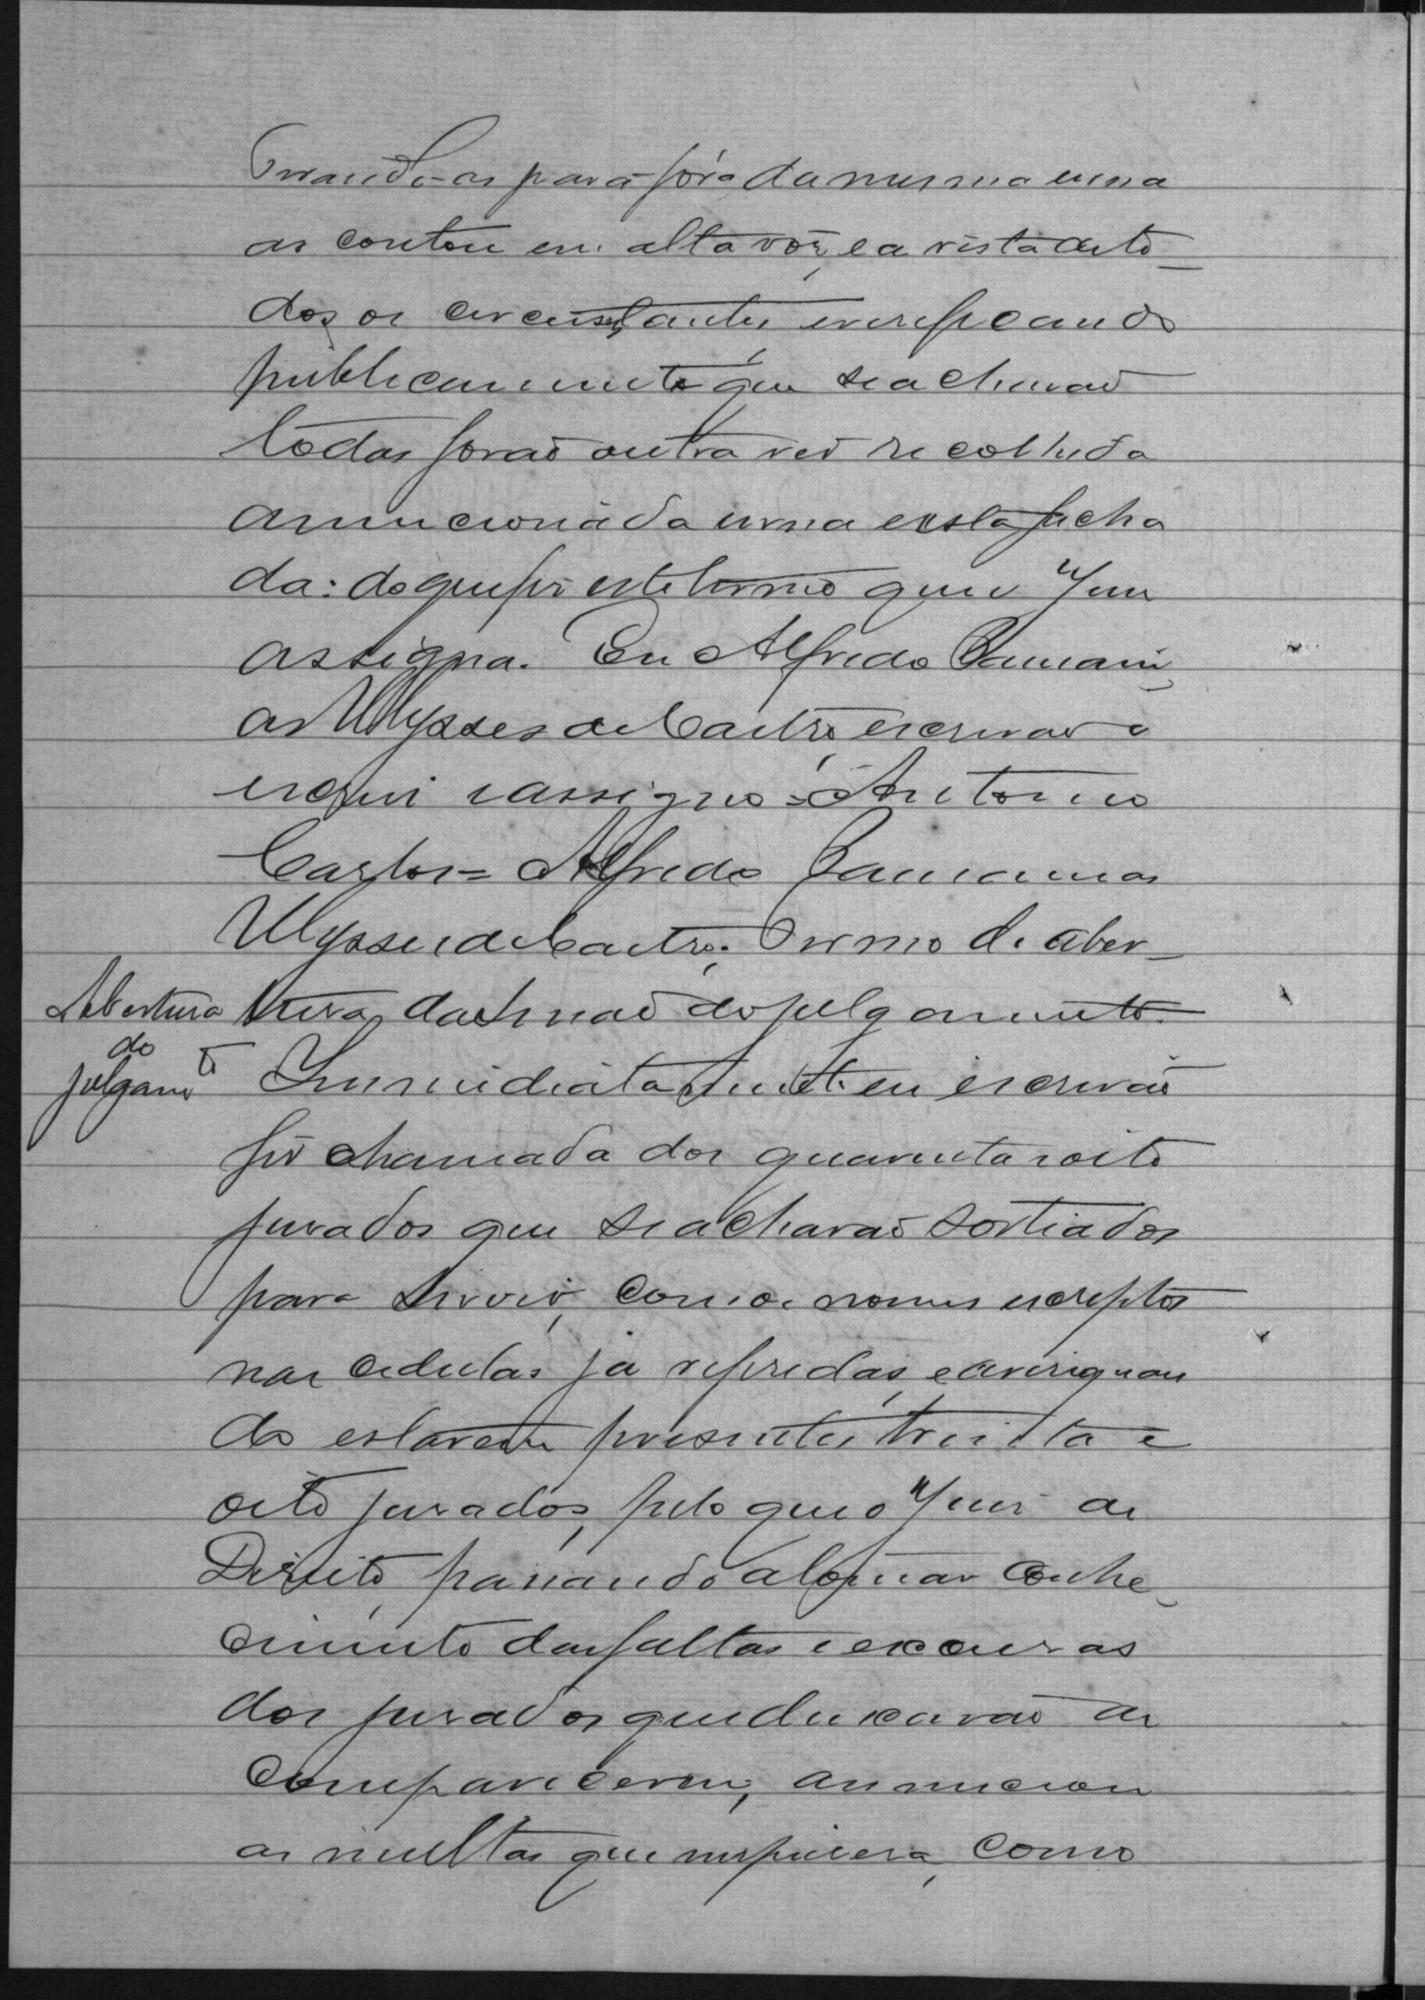 Tirando-as para fóra da mesma urna
as contou em alta vóz, e a vista de to-
dos os circunstantes e verificando
publicamente que se achavaõ
todas foraõ outra vez recolhida
a mencionada urna e esta fecha
da: do que fiz este termo que o Juiz
assigna. Eu Alfredo
as Ulysses de Castro, escrivaõ o
escrevi e assigno = Antonio
Carlos = Alfredo
Ulysses de Castro. Termo de aber-
Abertura do julgamto
tura da sessaõ do julgamento.
Immediatamente eu escrivaõ
fiz chamada dos quarenta e oito
jurados que se achavaõ sortiados
para servir, com os nomes escriptos
nas cedulas já referidas, e averiguan
do estarem presentes trinta e
oito jurados, pelo que o Juiz de
Direito, passando a tomar conhe-
cimento das faltas e excuzas
dos jurados que deixaraõ de
comparecerem, annunciou
as multas que impuzera, como